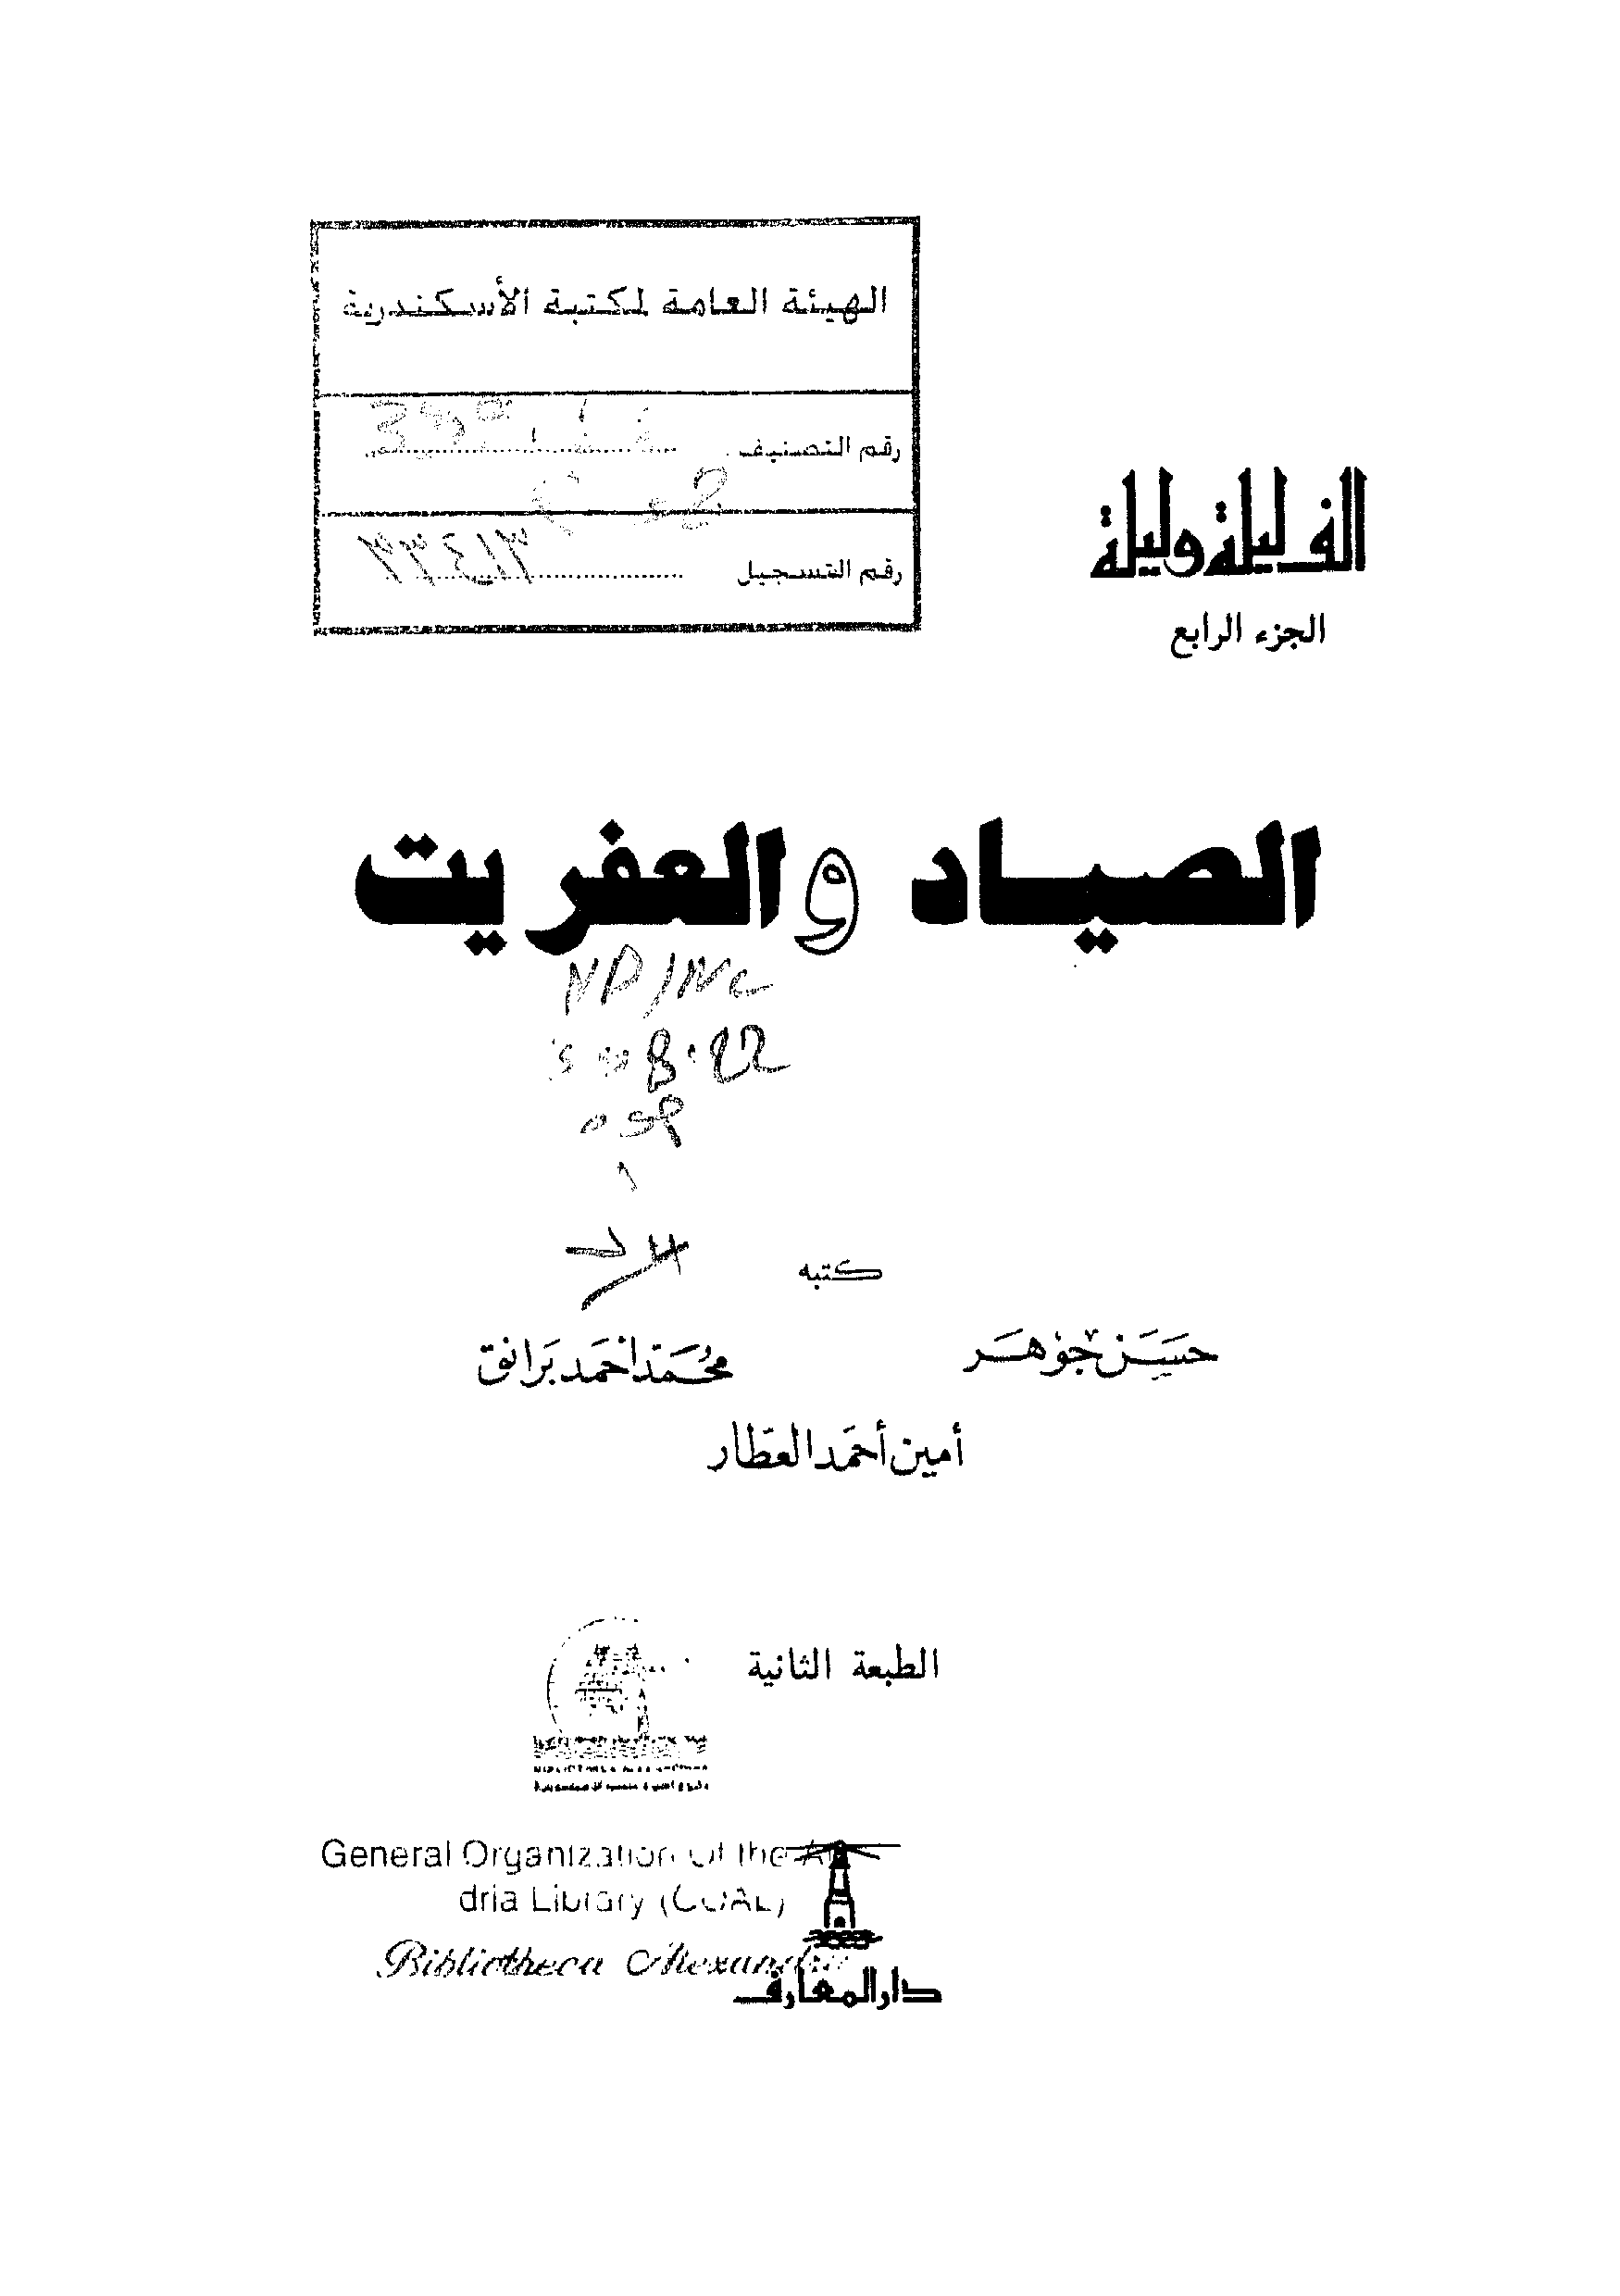 الهيئة العامة لمكتبة الأسكندرية
رقم التصنيف
رقم التسجيل ٣٣٤١٣
الف ليلة وليلة
الجزء الرابع
الصياد والعفريت
كتبه
حسَن جَوهَر
محُمَّد أحْمَد بَرانق
أمين أحمَد العَطار
الطبعة الثانية
General Organization Of the
dria Library (GOAL)
Bibliotheca Alexandrina
دار المعارف